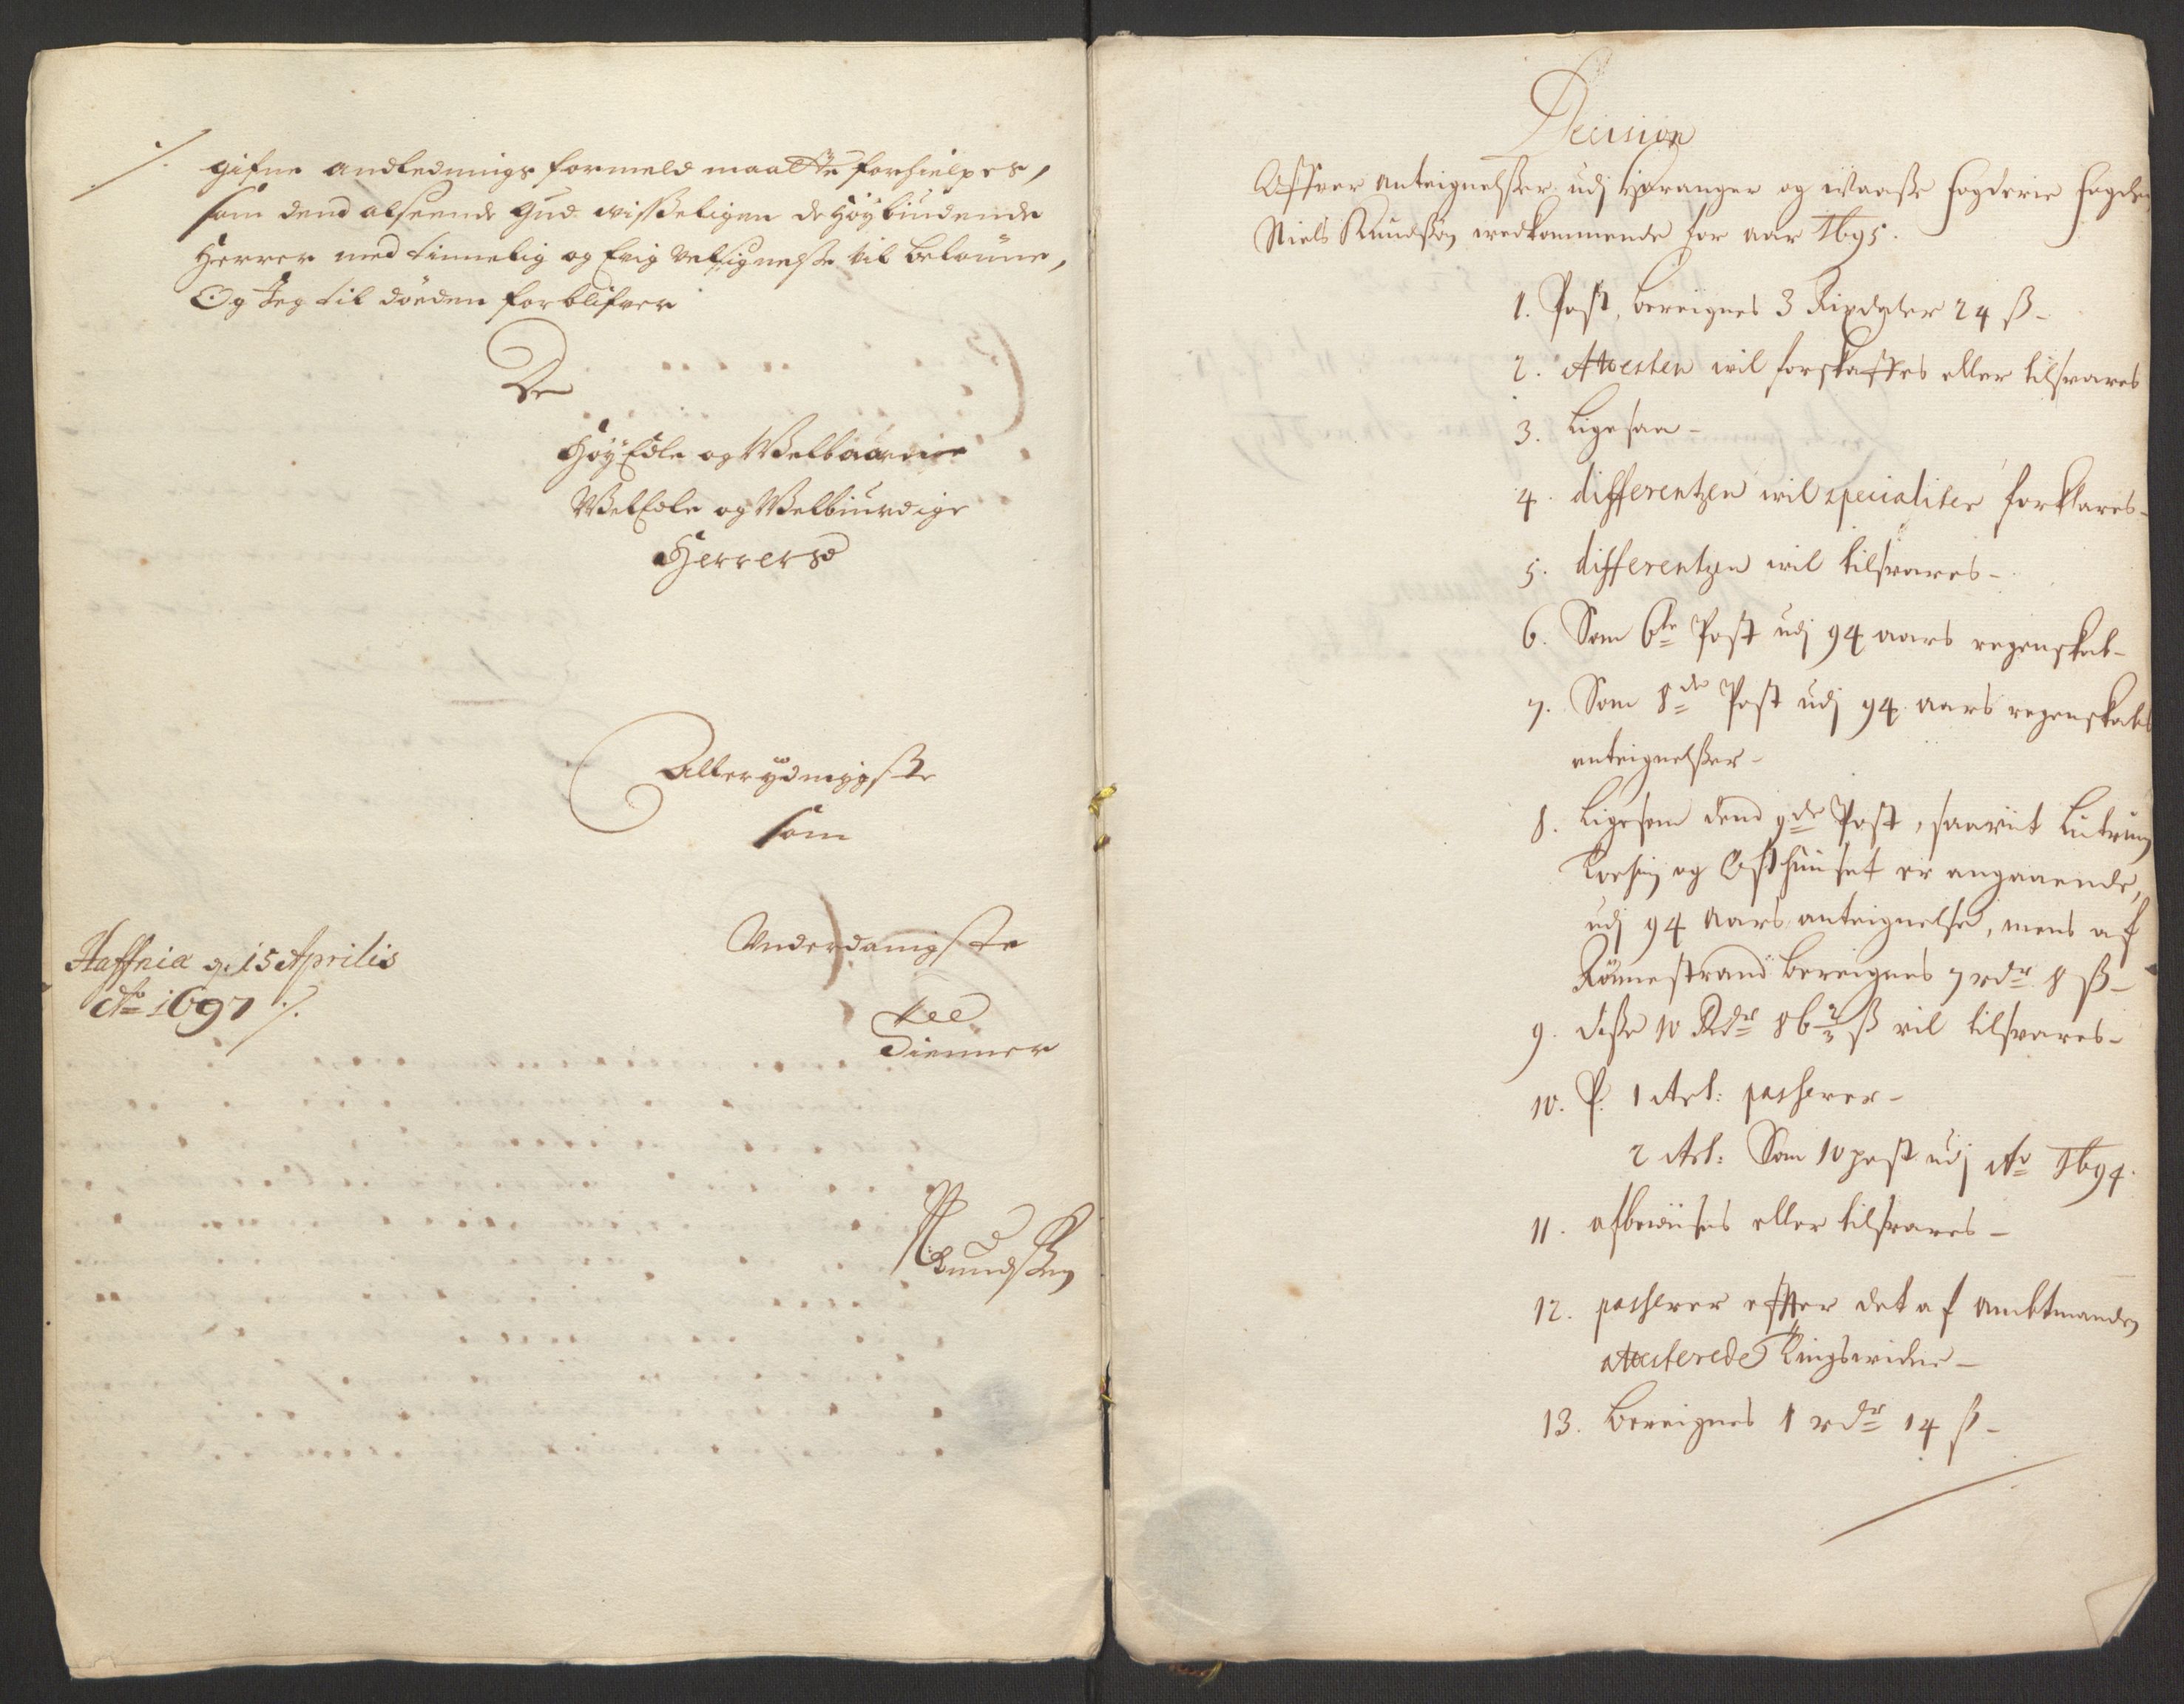 gifne andlednings formeld maatte forhielpes,
som dend alseende Gud visseligen de Höybiudende
Herrer med timmelig og Evig Velsignelse vil belönne,
Og Jeg til döeden forblifver
De
HöyEdle og Welbaarne
WelEdle og Welbiurdige
Herrers
Allerydmygste
som
Underdanigste
Tienner
Haffnia d. 15 Aprilis
Ao 1697 ./.
NKnudsen
Decision
Offver Anteignelser udj Hardanger og Waasse fogderie fogden
Niels Knudsøn vedkommende for aar 1695.
1. Post, bereignes 3 Rixdaler 24 ß -
2. Attesten vil forskaffes eller tilsvares
3. Ligesaa -
4. differentzen vil specialiter forklares -
5. differentzen vil tilsvares -
6. Som 6te Post udj 94 aars regenskab -
7. Som 8de Post udj 94 aars regenskabs
anteignelser -
8. Ligesom dend 9de Post, saavit
og er angaaende,
udj 94 aars anteignelse, mens af
bereignes 7 rdr 8 ß -
9. disse 10 Rdr 86 2/3 ß vil tilsvares -
10. P. 1 Art: passerer -
2 Art: Som 10 post udj Ao 1694.
11. afbeviises eller tilsvares -
12. passerer effter det af Amktmanden
atesterede Tingsvidne -
13. Bereignes 1 rdr 14 ß -